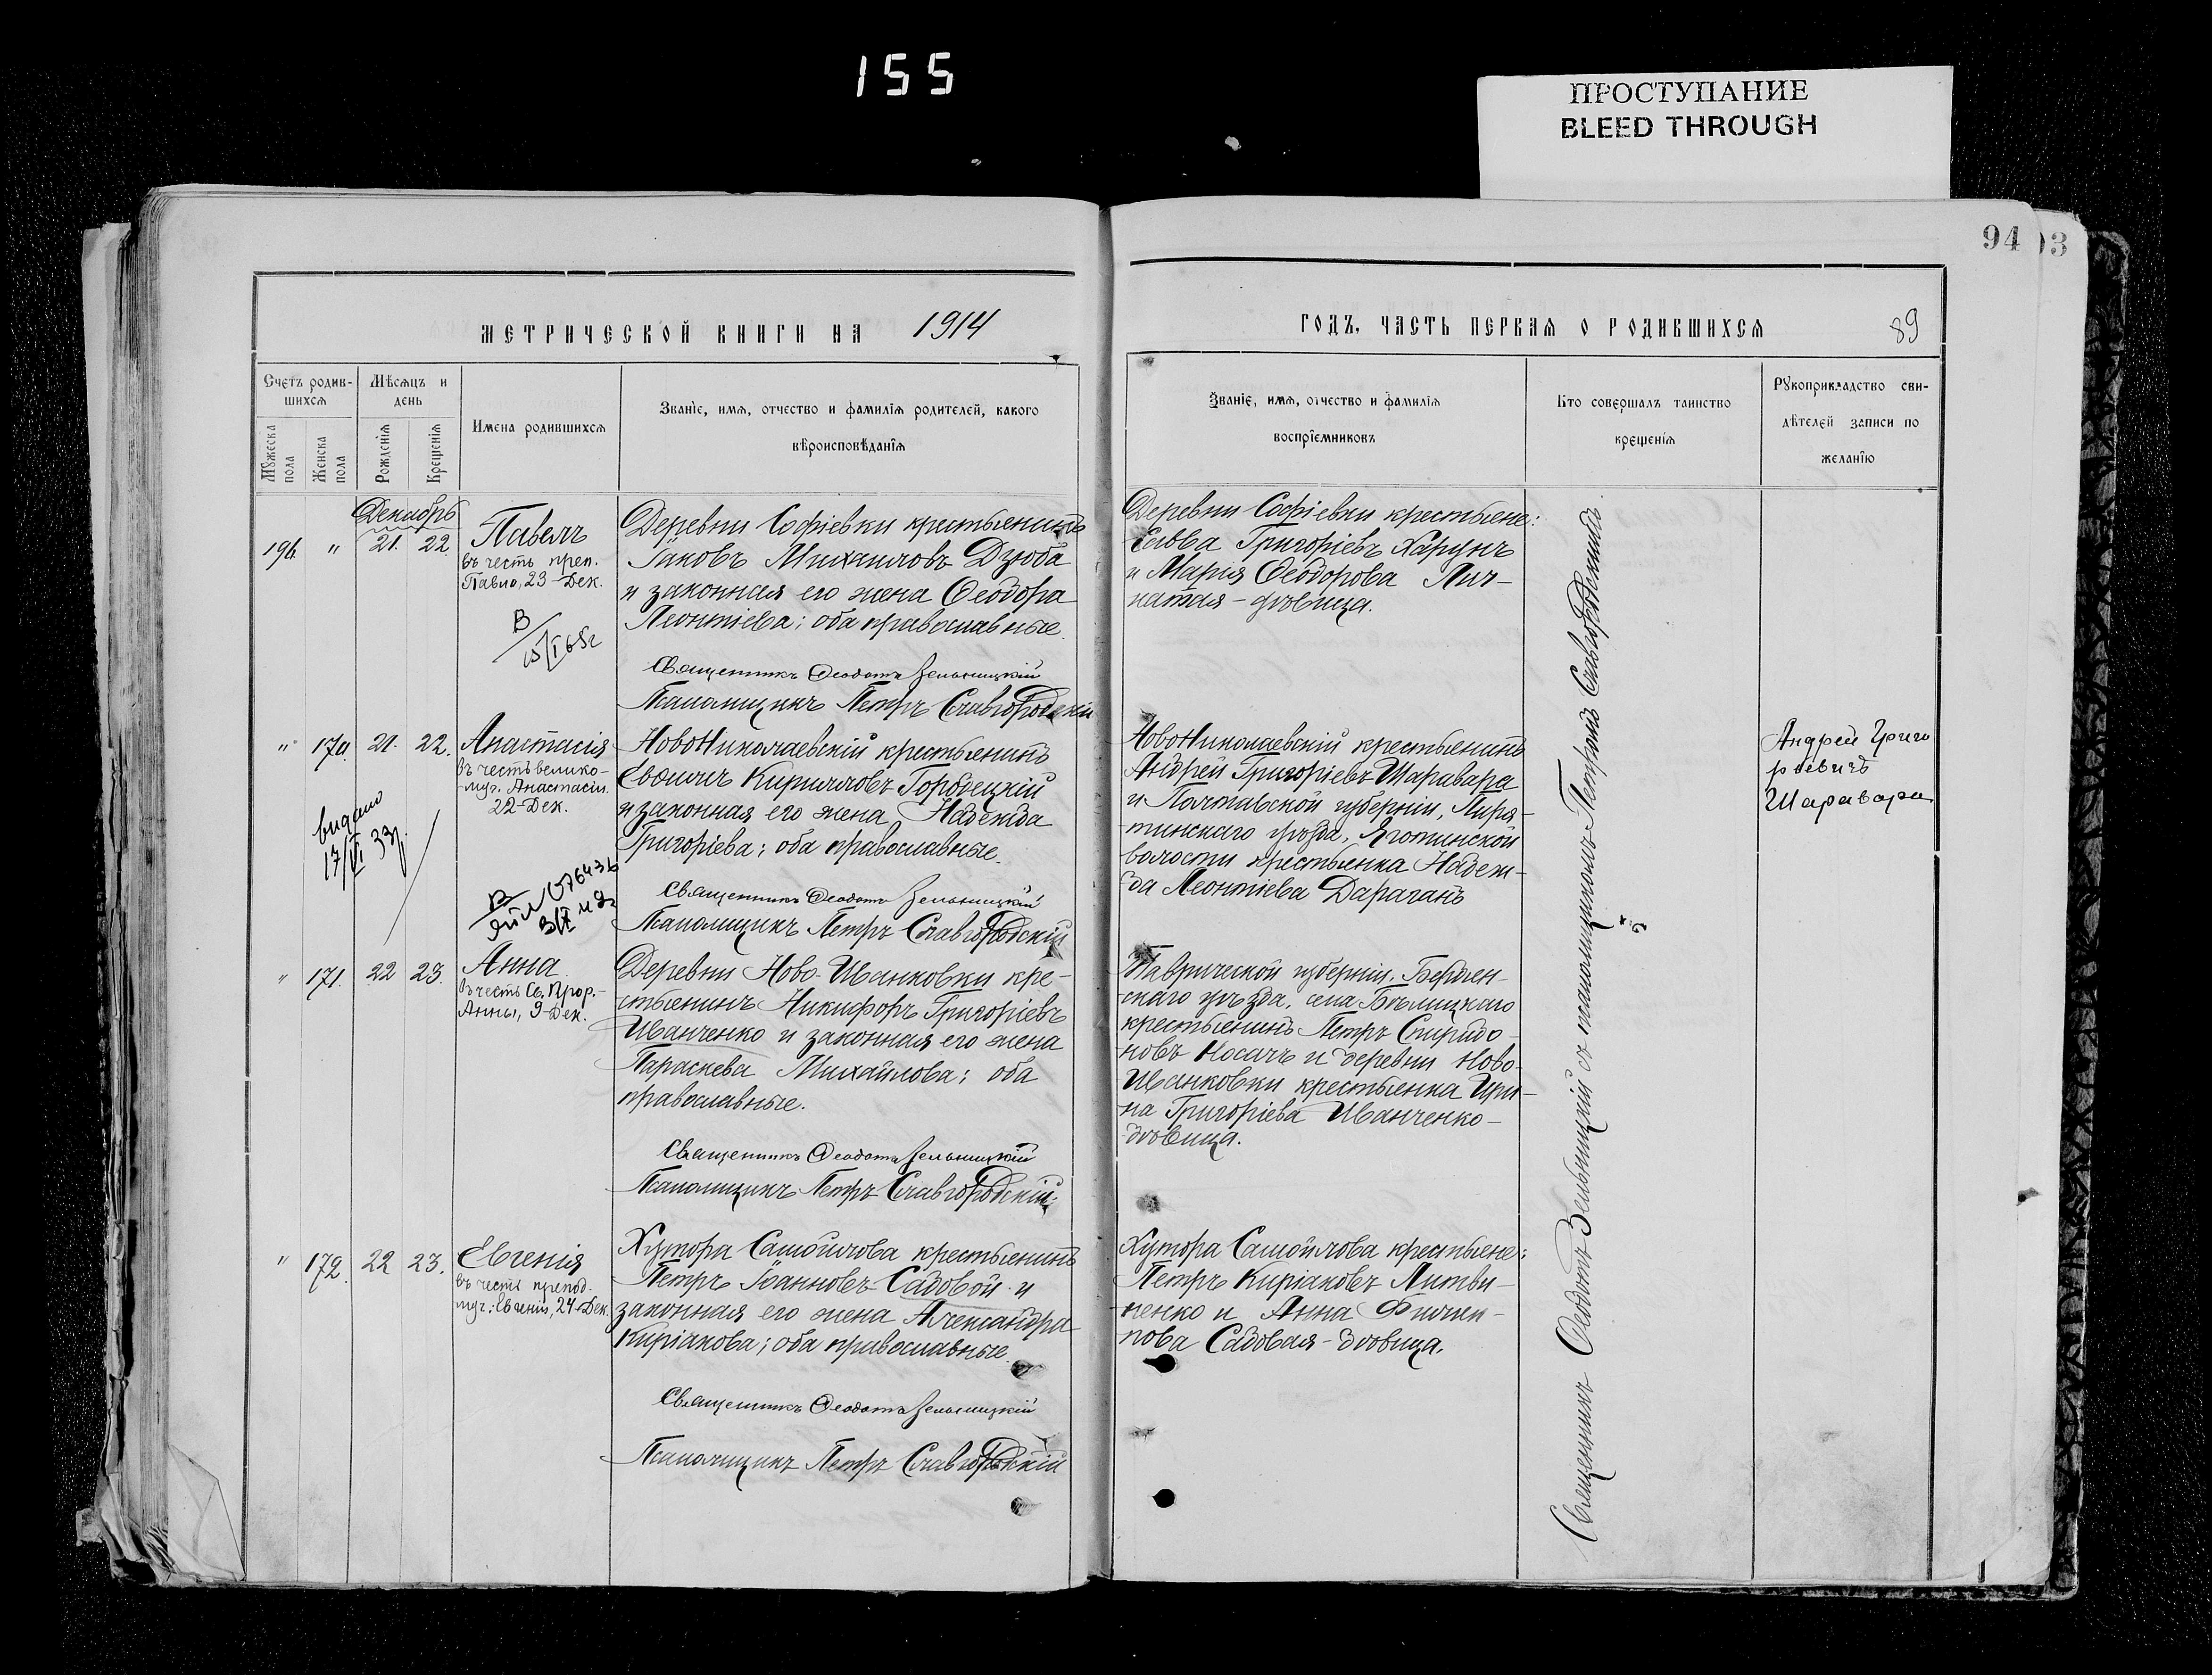 155
ПРОСТУПАНИЕ
BLEED THROUGH
94
93
МЕТРИЧЕСКОЙ КНИГИ НА 1914
ГОДЪ, ЧАСТЬ ПЕРВАЯ О РОДИВШИХСЯ
89
Счетъ родив-
шихся
Мѣсяцъ и
день
Мужеска
пола
Женска
пола
Рожденія
Крещенія
Имена родившихся
Званіе, имя, отчество и фамилія родителей, какого
вѣроисповѣданія
Званіе, имя, отчество и фамилія
воспріемниковъ
Кто совершалъ таинство
крещенія
Рукоприкладство сви-
дѣтелей записи по
желанію
Декабрь
196. " 21. 22.
Павелъ
въ честь преп.
Павла, 23 Дек.
Деревни Софіевки крестьянинъ
Іаковъ Михаиловъ Дзюба
и законная его жена Ѳеодора
Леонтіева; оба православные.
Священникъ Ѳеодотъ Зельницкій
Псаломщикъ Петръ Славгородскій
Деревни Софіевки крестьяне:
Савва Григоріевъ Харунъ
и Марія Ѳеодорова Лич-
натая - дѣвица.
" 170. 21. 22.
Анастасія
въ честь велико-
муч. Анастасіи
22 Дек.
видано
17/VI 33р.
НовоНиколаевскій крестьянинъ
Евѳимъ Кирилловъ Городецкій
и законная его жена Надежда
Григоріева; оба православные.
Священникъ Ѳеодотъ Зельницкій
Псаломщикъ Петръ Славгородскій
НовоНиколаевскій крестьянинъ
Андрей Григоріевъ Шаравара
и Полтавской губерніи, Пиря-
тинскаго уѣзда, Яготинской
волости крестьянка Надеж-
да Леонтіева Дараганъ
Андрей Григо
рьевичъ
Шаравара
" 171. 22 23.
Анна
въ честь Св. Прор.
Анны, 9 Дек.
Деревни Ново-Иванковки кре-
стьянинъ Никифоръ Григоріевъ
Иванченко и законная его жена
Параскева Михайлова; оба
православные.
Священникъ Ѳеодотъ Зельницкій
Псаломщикъ Петръ Славгородскій
Таврической губерніи, Бердян-
скаго уѣзда, села Бѣлицкаго
крестьянинъ Петръ Спиридо-
новъ Носачъ и деревни Ново-
Иванковки крестьянка Ири-
на Григоріева Иванченко -
дѣвица.
" 172. 22 23.
Евгенія
въ честь препод.
муч. Евгеніи, 24 Дек.
Хутора Самойлова крестьянинъ
Петръ Іоанновъ Садовой и
законная его жена Александра
Киріакова; оба православные.
Священникъ Ѳеодотъ Зельницкій
Псаломщикъ Петръ Славгородскій
Хутора Самойлова крестьяне:
Петръ Киріаковъ Литви-
ненко и Анна Филип-
пова Садовая - дѣвица.
Священникъ Ѳеодотъ Зельницкій съ псаломщикомъ Петромъ Славгородскимъ